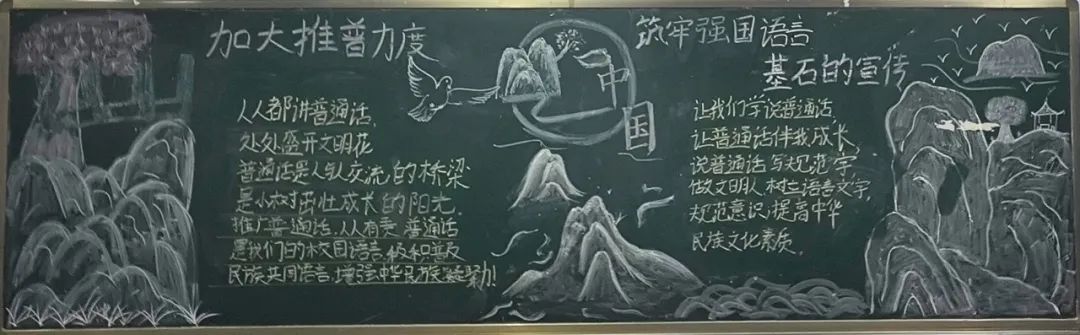 加大推普力度
人人都讲普通话,
处处盛开文明花
普通话是人与人交流的桥梁
是小树茁壮成长的阳光.
推广普通话,人人有责 普通话
是我们的校园语言 积极普及
民族共同语言,增强中华民族凝聚力!
一中国
筑牢强国语言
基石的宣传
让我们学说普通话,
让普通话伴我成长,
说普通话 写规范字
做文明人 树立语言文字,
规范意识,提高中华
民族文化素质.